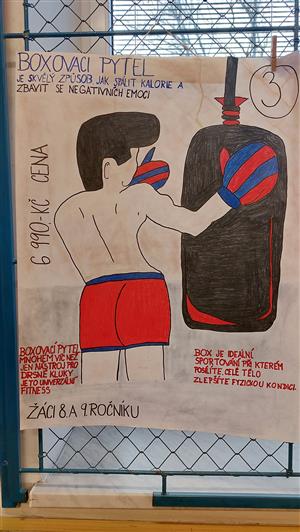 BOXOVACÍ PYTEL
JE SKVĚLÝ ZPŮSOB JAK SPÁLIT KALORIE A
ZBAVIT SE NEGATIVNÍCH EMOCÍ
3
6 990,-KČ CENA
BOXOVACÍ PYTEL
MNOHEM VÍC NEŽ
JEN NÁSTROJ PRO
DRSNÉ KLUKY
JE TO UNIVERZÁLNÍ
FITNESS
BOX JE IDEÁLNÍ
SPORTOVÁNÍ PŘI KTERÉM
POSÍLÍTE CELÉ TĚLO
ZLEPŠÍTE FYZICKOU KONDACI
ŽÁCI 8 A 9 ROČNÍKU